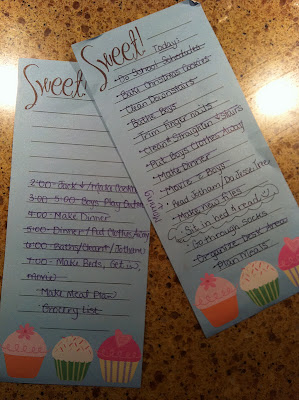 Sweet!
2:00 - Jack & Infata Cookin
3:00 - 5:00 - Boys Play Outside
4:00 - Make Dinner
5:00 - Dinner / Put Clothes Away
6:00 - Baths /
7:00 - Make Beds, Get in
movie
Make Meal Plan
Grocery List
Sweet! Today:
Do School Schedules
Bake Christmas Cookies
Clean Downstairs
Bathe Boys
Trim Fingernails
Clean & Straighten Upstairs
Put Boys Clothes Away
Make Dinner
Movie w/ Boys
Read
Make new files
Sit in bed & read
Go through socks
Organize Desk Area
Plan Meals